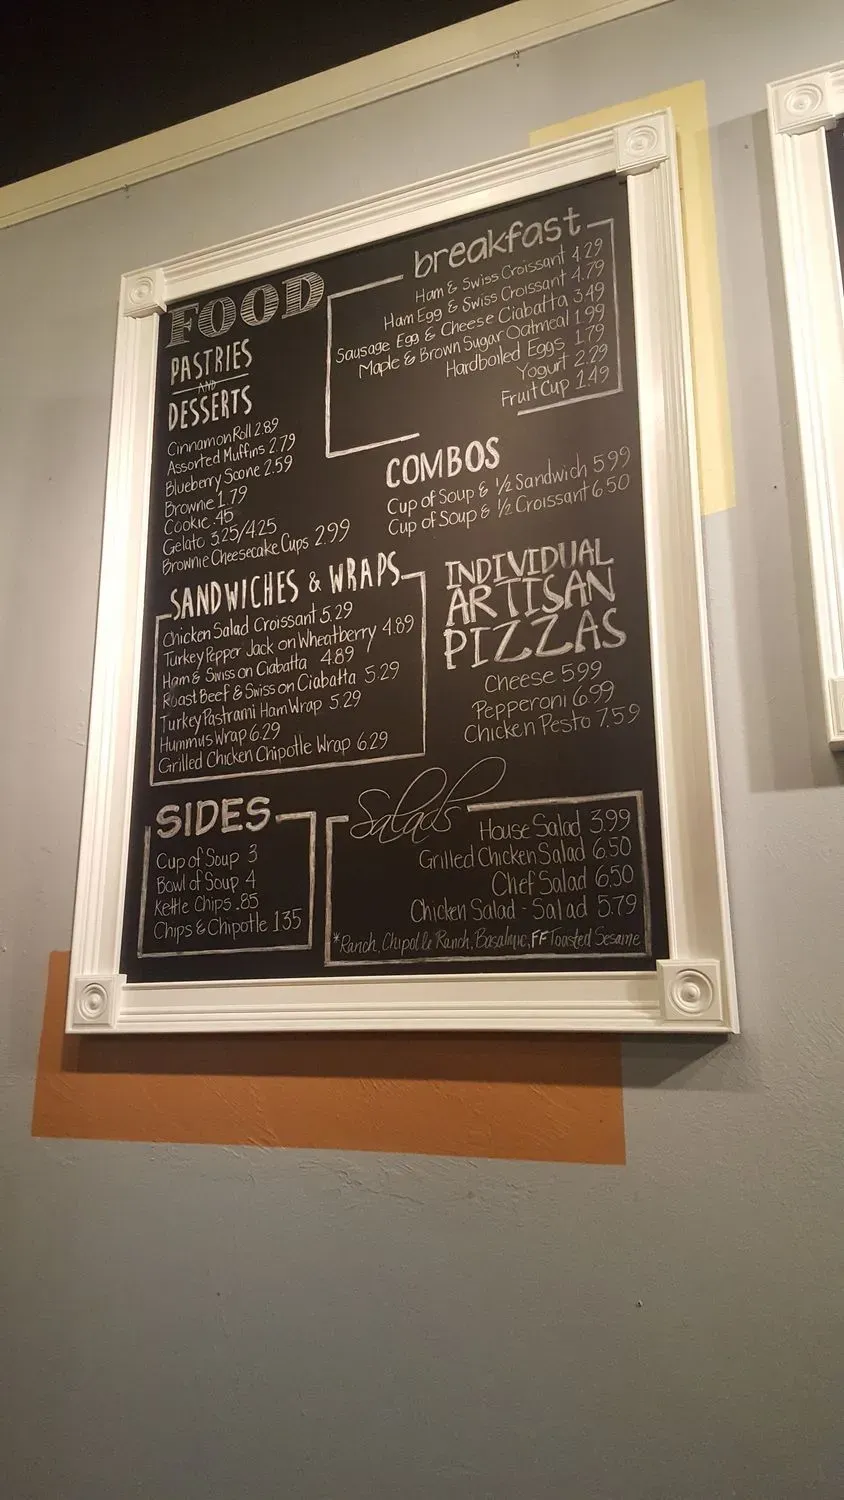 FOOD
PASTRIES
AND
DESSERTS
Cinnamon Roll 2.89
Assorted Muffins 2.79
Blueberry Scone 2.59
Brownie 1.79
Cookie .45
Gelato 3.25/4.25
Brownie Cheesecake Cups 2.99
breakfast
Ham & Swiss Croissant 4.29
Ham Egg & Swiss Croissant 4.79
Sausage Egg & Cheese Ciabatta 3.49
Maple & Brown Sugar Oatmeal 1.99
Hardboiled Eggs 1.79
Yogurt 2.29
Fruit Cup 1.49
COMBOS
Cup of Soup & 1/2 Sandwich 5.99
Cup of Soup & 1/2 Croissant 6.50
SANDWICHES & WRAPS
Chicken Salad Croissant 5.29
Turkey Pepper Jack on Wheatberry 4.89
Ham & Swiss on Ciabatta 4.89
Roast Beef & Swiss on Ciabatta 5.29
Turkey Pastrami Ham Wrap 5.29
Hummus Wrap 6.29
Grilled Chicken Chipotle Wrap 6.29
INDIVIDUAL
ARTISAN
PIZZAS
Cheese 5.99
Pepperoni 6.99
Chicken Pesto 7.59
SIDES
Cup of Soup 3
Bowl of Soup 4
Kettle Chips .85
Chips & Chipotle 1.35
Salads
House Salad 3.99
Grilled Chicken Salad 6.50
Chef Salad 6.50
Chicken Salad - Salad 5.79
*Ranch, Chipotle Ranch, Basalmic, FF Toasted Sesame